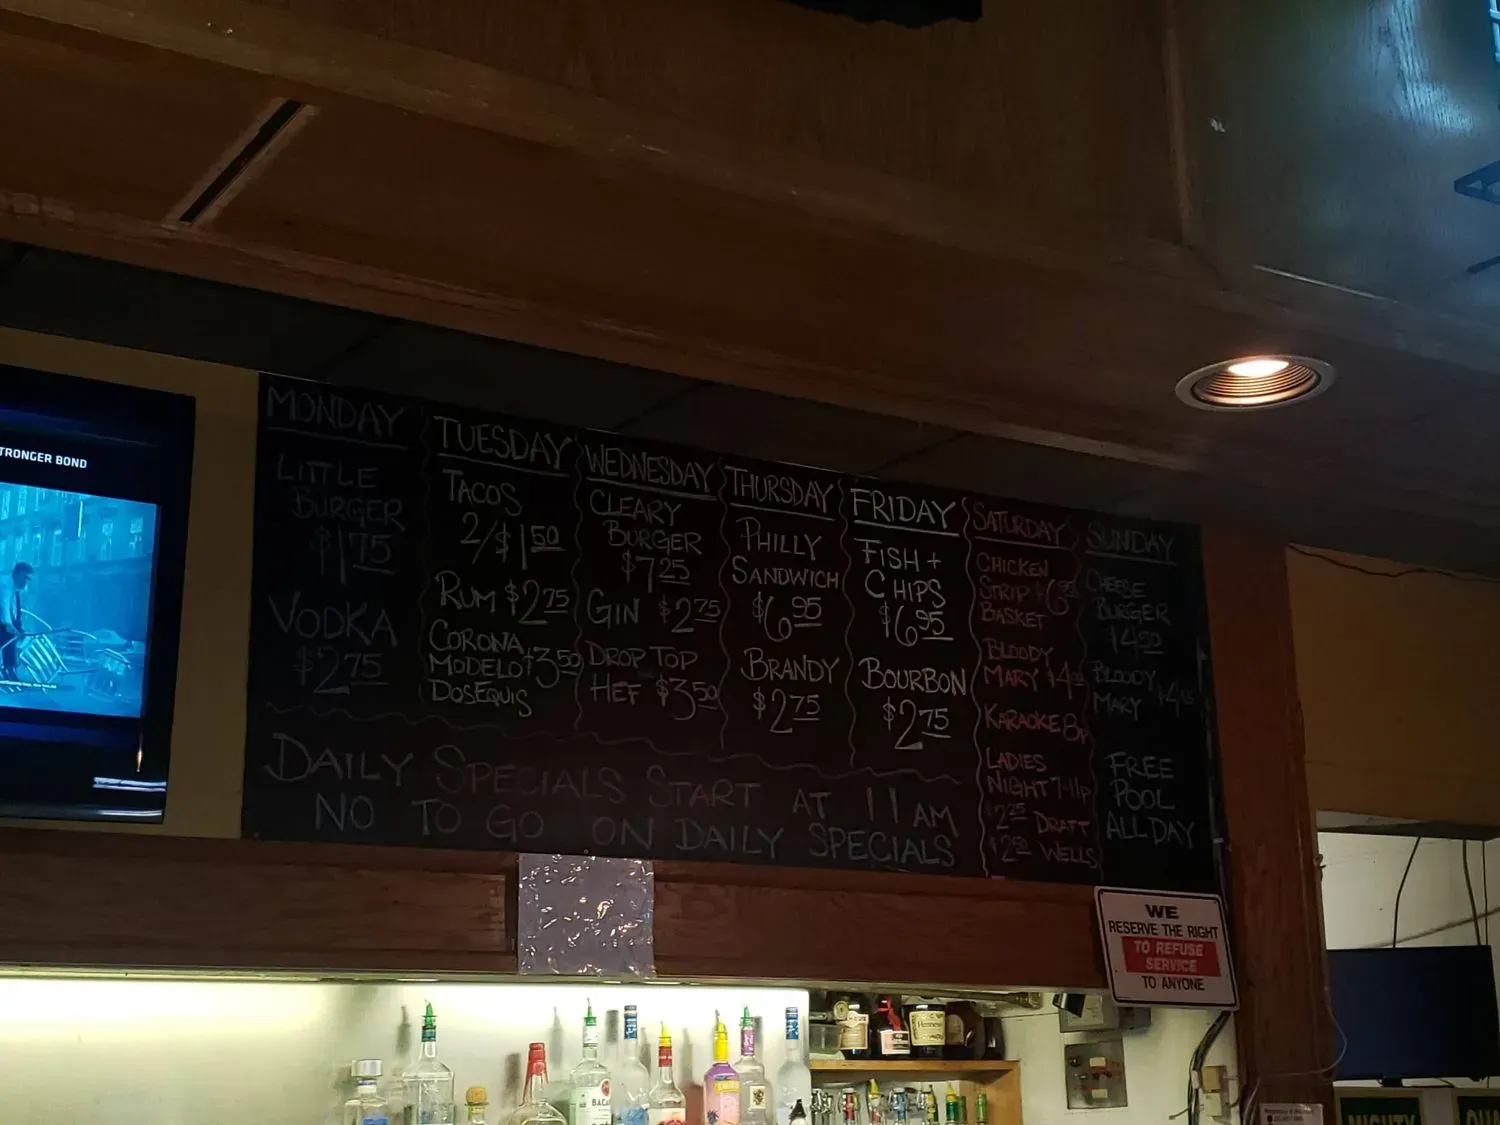 TRONGER BOND
MONDAY
LITTLE
BURGER
$1 75
VODKA
$2 75
TUESDAY
TACOS
2/$1 50
RUM $2 75
CORONA
MODELO $3 50
DOSEQUIS
WEDNESDAY
CLEARY
BURGER
$7 25
GIN $2 75
DROP TOP
HEF $3 50
THURSDAY
PHILLY
SANDWICH
$6 95
BRANDY
$2 75
FRIDAY
FISH +
CHIPS
$6 95
BOURBON
$2 75
SATURDAY
CHICKEN
STRIP $6 95
BASKET
BLOODY
MARY
KARAOKE 8p
LADIES
NIGHT 7-11p
DRAFT
WELLS
SUNDAY
CHEESE
BURGER
BLOODY
MARY
FREE
POOL
ALL DAY
DAILY SPECIALS START AT 11 AM
NO TO GO ON DAILY SPECIALS
WE
RESERVE THE RIGHT
TO REFUSE
SERVICE
TO ANYONE
Hennessy
MIGHTY